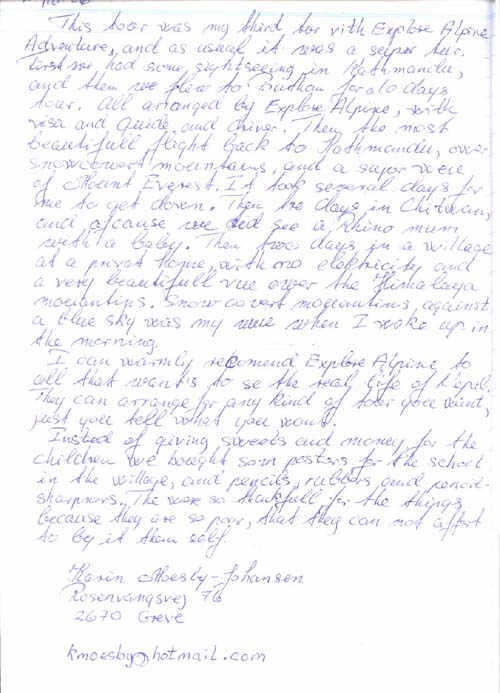 This tour was my third tur with Explore Alpine
Adventure, and as usual it was a super tur.
First we had some sightseeing in Kathmandu,
and then we flew to Buthan for a 10 days
tour. All arranged by Explore Alpine, with
visa and guide and driver. Then the most
beautifull flight back to Kathmandu, over
snowcowert mountains, and a super wiew
of Mount Everest. It took several days for
me to get down. Then two days in Chitwan,
and ofcause we did see a Rhino mum
with a baby. Then two days in a village
at a privat home, with no elektricity and
a very beautifull vue over the Himalaya
mountins. Snow covert mountins, against
a blue sky was my vue when I woke up in
the morning.
I can warmly recomend Explore Alpine to
all that want's to se the real life of Nepal.
They can arrange for any kind of tour you want,
just you tell what you want.
Insted of giving sweets and money for the
children we bought som posters for the school
in the village, and pencils, rubbers and pencil-
sharpners. The were so thankfull for the things
because they are so poor, that they can not affort
to by it them self.
Karin Moesby-Johansen
Rosenvangsvej 76
2670 Greve
kmoesby@hotmail.com